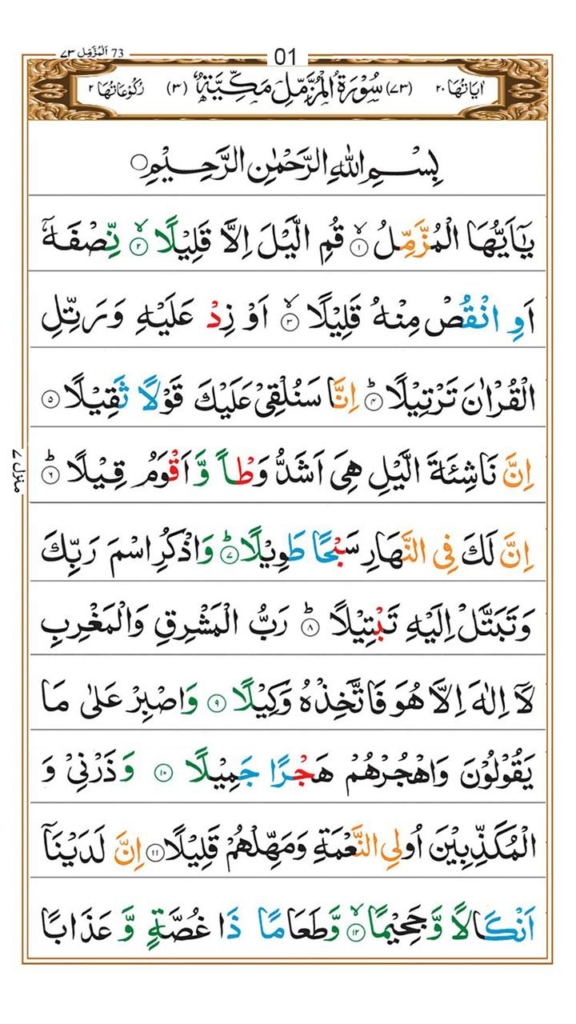 73 اَلْمُزَّمِّل ٧٣
01
اٰيَاتُهَا ٢٠ (٧٣) سُوْرَةُ الْمُزَّمِّلِ مَكِّيَّةٌ (٣) رُكُوْعَاتُهَا ٢
بِسْمِ اللّٰهِ الرَّحْمٰنِ الرَّحِيْمِ
يٰۤاَيُّهَا الْمُزَّمِّلُ ۙ۝١ قُمِ الَّيْلَ اِلَّا قَلِيْلًا ۙ۝٢ نِّصْفَهٗۤ
اَوِ انْقُصْ مِنْهُ قَلِيْلًا ۙ۝٣ اَوْ زِدْ عَلَيْهِ وَرَتِّلِ
الْقُرْاٰنَ تَرْتِيْلًا ؕ۝٤ اِنَّا سَنُلْقِيْ عَلَيْكَ قَوْلًا ثَقِيْلًا ۝٥
اِنَّ نَاشِئَةَ الَّيْلِ هِيَ اَشَدُّ وَطْاً وَّاَقْوَمُ قِيْلًا ؕ۝٦
منزل ٧
اِنَّ لَكَ فِي النَّهَارِ سَبْحًا طَوِيْلًا ؕ۝٧ وَاذْكُرِ اسْمَ رَبِّكَ
وَتَبَتَّلْ اِلَيْهِ تَبْتِيْلًا ؕ۝٨ رَبُّ الْمَشْرِقِ وَالْمَغْرِبِ
لَاۤ اِلٰهَ اِلَّا هُوَ فَاتَّخِذْهُ وَكِيْلًا ۝٩ وَاصْبِرْ عَلٰى مَا
يَقُوْلُوْنَ وَاهْجُرْهُمْ هَجْرًا جَمِيْلًا ۝١٠ وَذَرْنِيْ وَ
الْمُكَذِّبِيْنَ اُولِي النَّعْمَةِ وَمَهِّلْهُمْ قَلِيْلًا ۝١١ اِنَّ لَدَيْنَاۤ
اَنْكَالًا وَّجَحِيْمًا ۙ۝١٢ وَّطَعَامًا ذَا غُصَّةٍ وَّ عَذَابًا